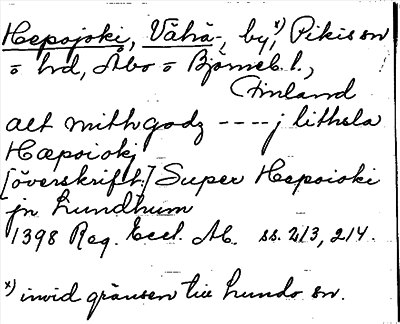 Hepojoki, Vähä-, by,x) Pikis sn
o hd, Åbo o Björneb. l.,
Finland
alt mith godz ---- j lithsla
Hæpoiokj
[överskrift:] Super Hepoioki
jn Lundhum
1398 Reg. Eccl. Ab. ss. 213, 214.
x) invid gränsen till Lundo sn.